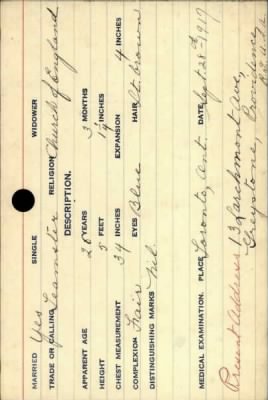 MARRIED Yes SINGLE WIDOWER
TRADE OR CALLING Teamster RELIGION Church of England
DESCRIPTION.
APPARENT AGE 28 YEARS 3 MONTHS
HEIGHT 5 FEET 1½
CHEST MEASUREMENT 34 INCHES EXPANSION 4 INCHES
COMPLEXION Fair EYES Blue HAIR Lt. brown
DISTINGUISHING MARKS Nil.
MEDICAL EXAMINATION. PLACE Toronto, Ont. DATE Sept 28th 1917
Present Address 13 Larchmont Ave,
Greystone, Providence,
R.I. U.S.A.